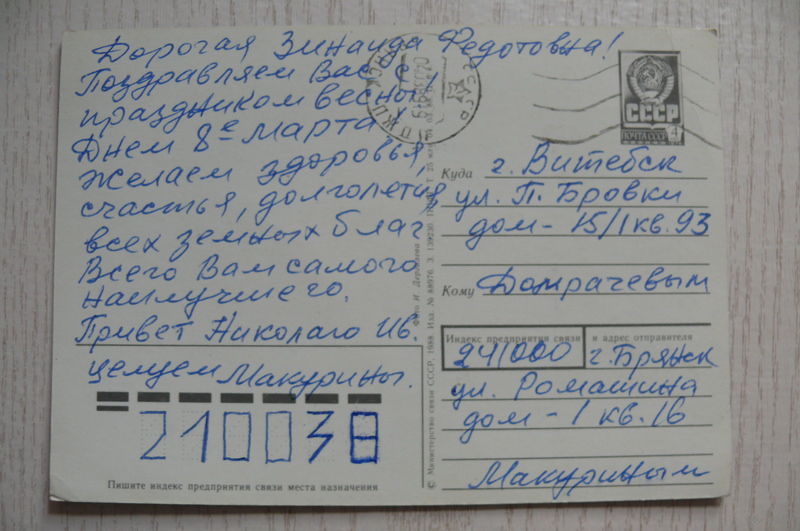 Дорогая Зинаида Федотовна!
Поздравляем Вас с
праздником весной,
Днем 8е марта!
Желаем здоровья,
счастья, долголетия,
всех земных благ
Всего Вам самого
наилучшего.
Привет Николаю Ив.
целуем Макурины.
210038
Пишите индекс предприятия связи места назначения
СССР
ПОЧТА СССР 4
Куда г. Витебск
ул. П. Бровки
дом - 15/1 кв. 93
Кому Домрачевым
Индекс предприятия связи и адрес отправителя
241000 г. Брянск
ул. Ромашина
дом - 1 кв. 16
Макуриным
© Министерство связи СССР. 1988.